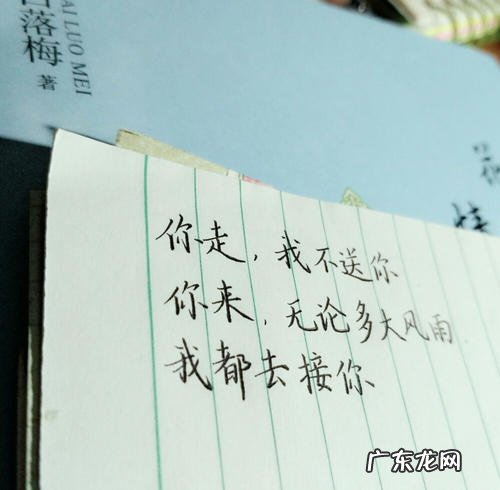 落梅 著
AI LUO MEI
你走，我不送你
你来，无论多大风雨
我都去接你
广东龙网